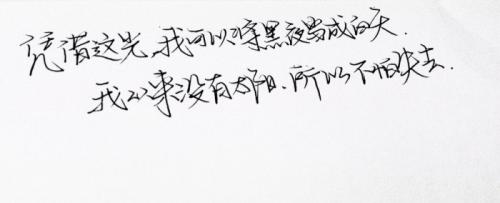 凭借这光,我可以将黑夜当成白天.
我从来没有太阳.所以不怕失去.